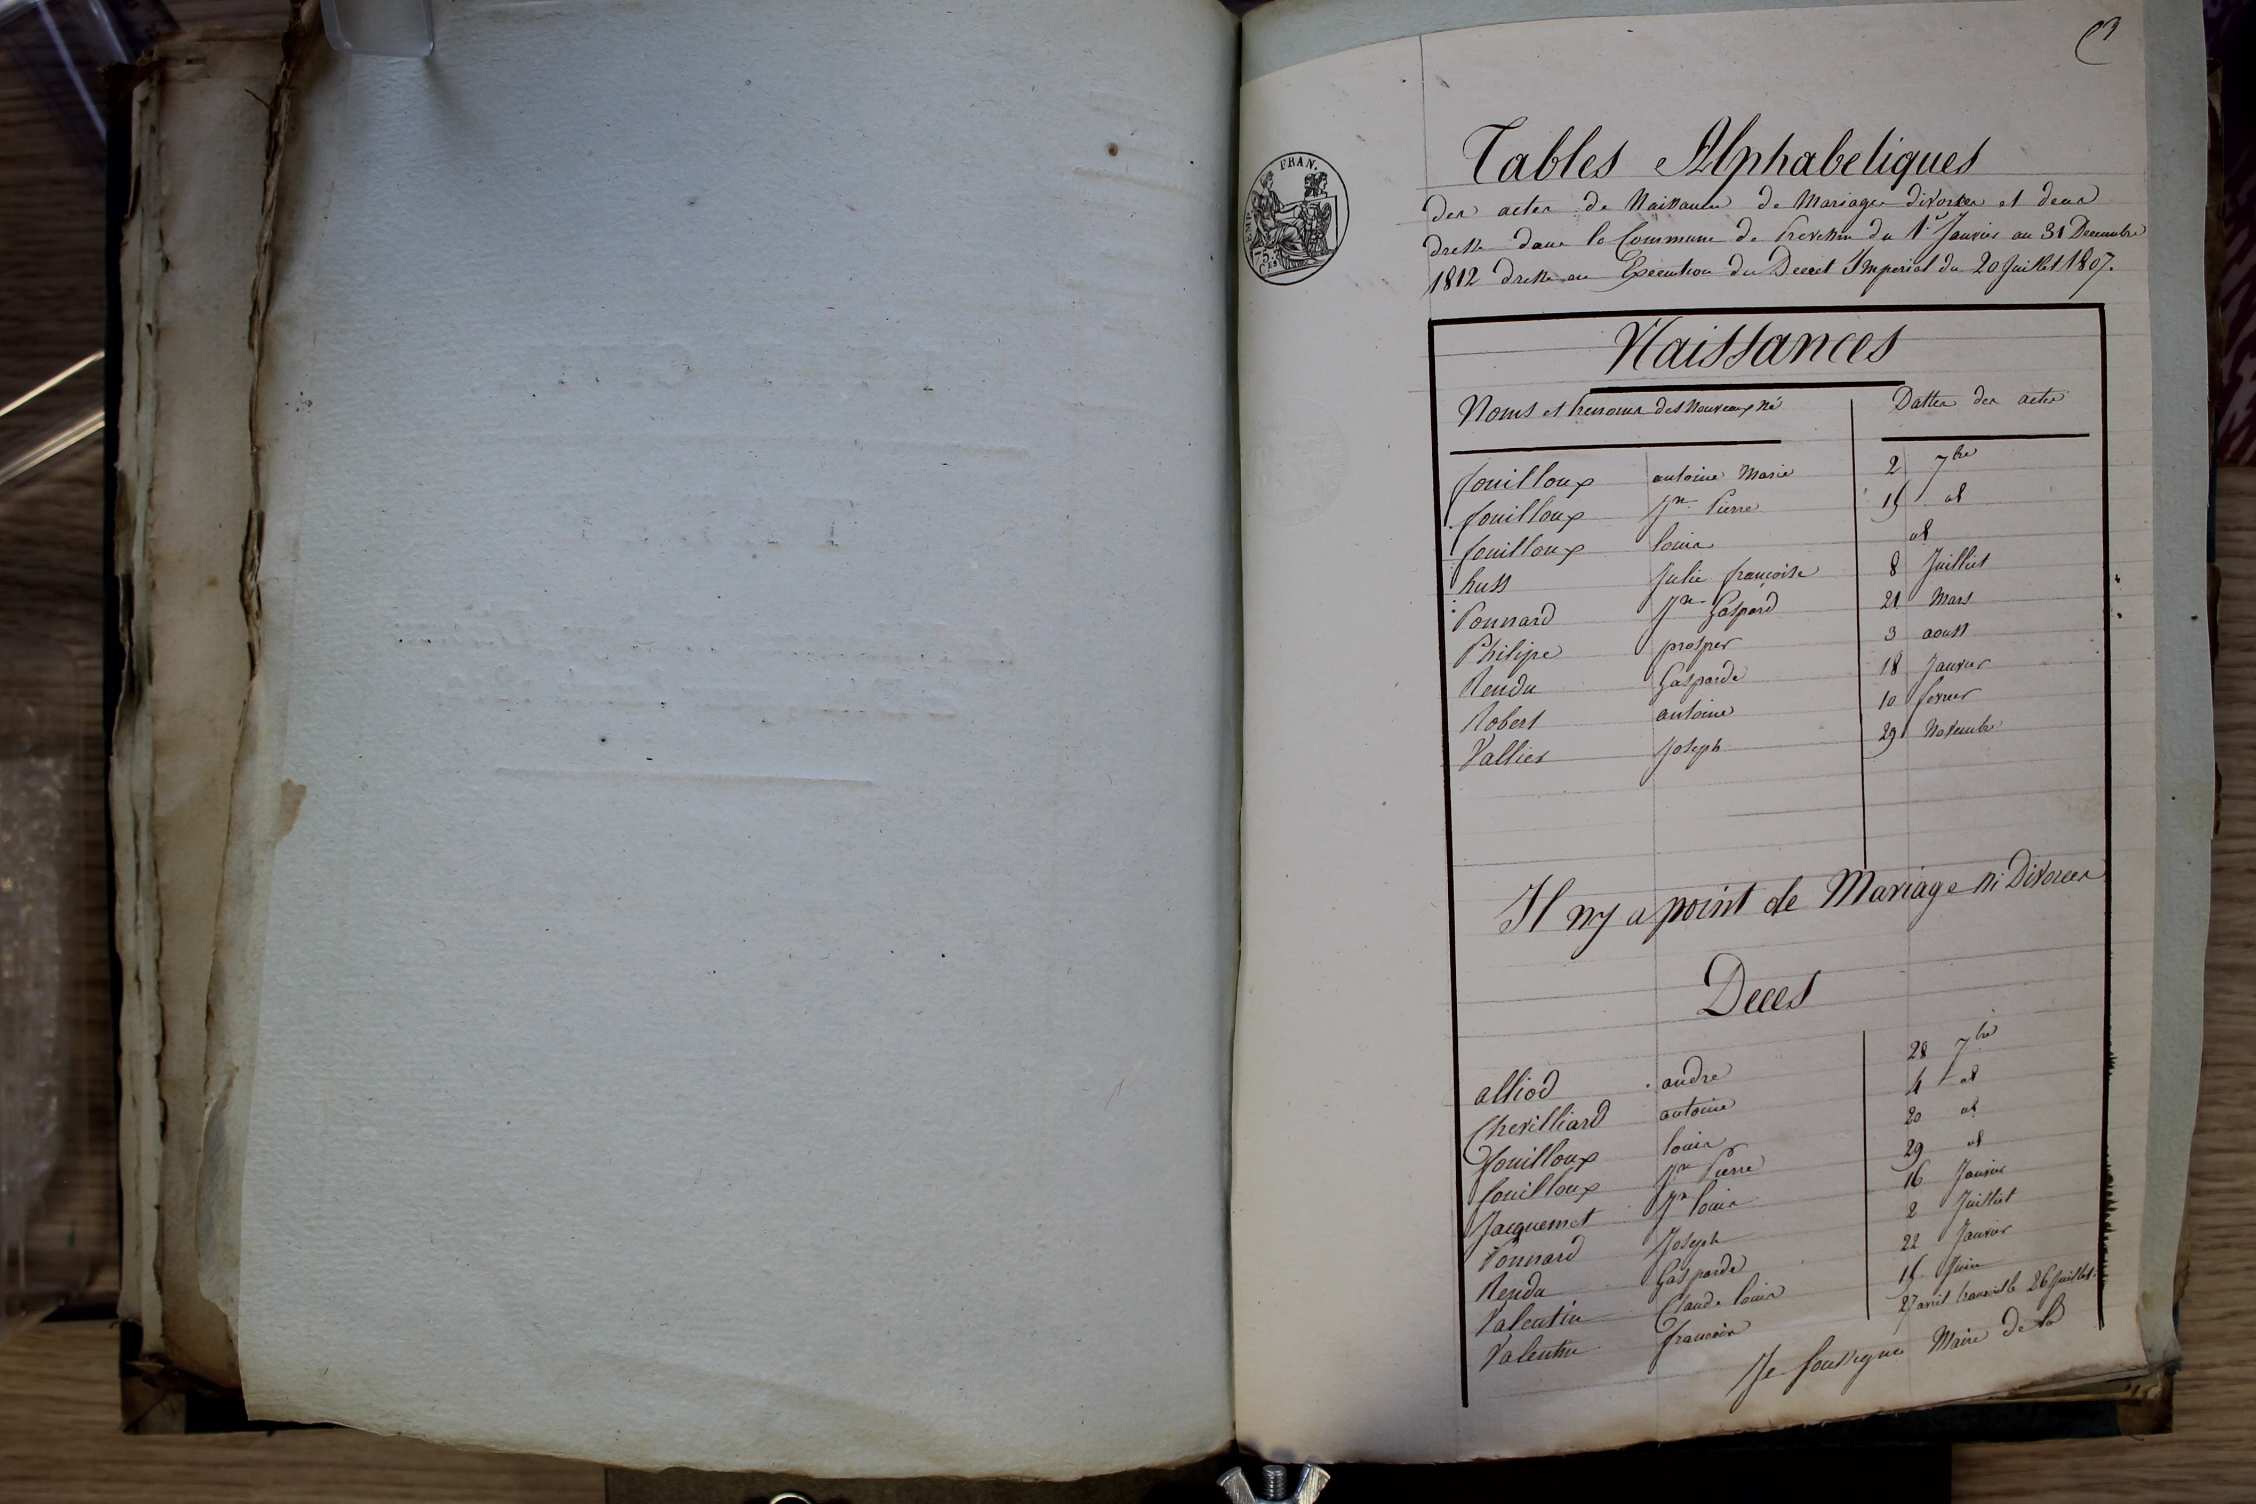 Tables Alphabetiques
des actes de Naissance de Mariage divorces et deces
dressé dans la Commune de Prevessin du 1r. Janvier au 31 Decembre
1812 dressé en Execution du Decret Imperial du 20 Juillet 1807.
EMP. FRAN.
75 Ces
Naissances
Noms et Prenoms des Nouveaux Né Dattes des actes
fouilloux antoine Marie 2 7bre
fouilloux Jn. Pierre 15 id
fouilloux louis id
huss Julie françoise 8 Juillet
Ponnard Jn. Gaspard 21 Mars
Philipe prosper 3 aoust
Rendu Gasparde 18 Janvier
Robert antoine 10 fevrier
Vallier Joseph 29 Novembre
Il ny a point de Mariage ni Divorces
Deces
alliod andre 28 7bre
Chevilliard antoine 4 id
fouilloux louis 20 id
fouilloux Jn Pierre 29 id
Jacquemet Jn louis 16 Janvier
Ponnard Joseph 2 Juillet
Rendu Gasparde 22 Janvier
Valentin Claude louis 15 Juin
Valentin francois 27 avril 26 Juillet
Je soussigné Maire de la